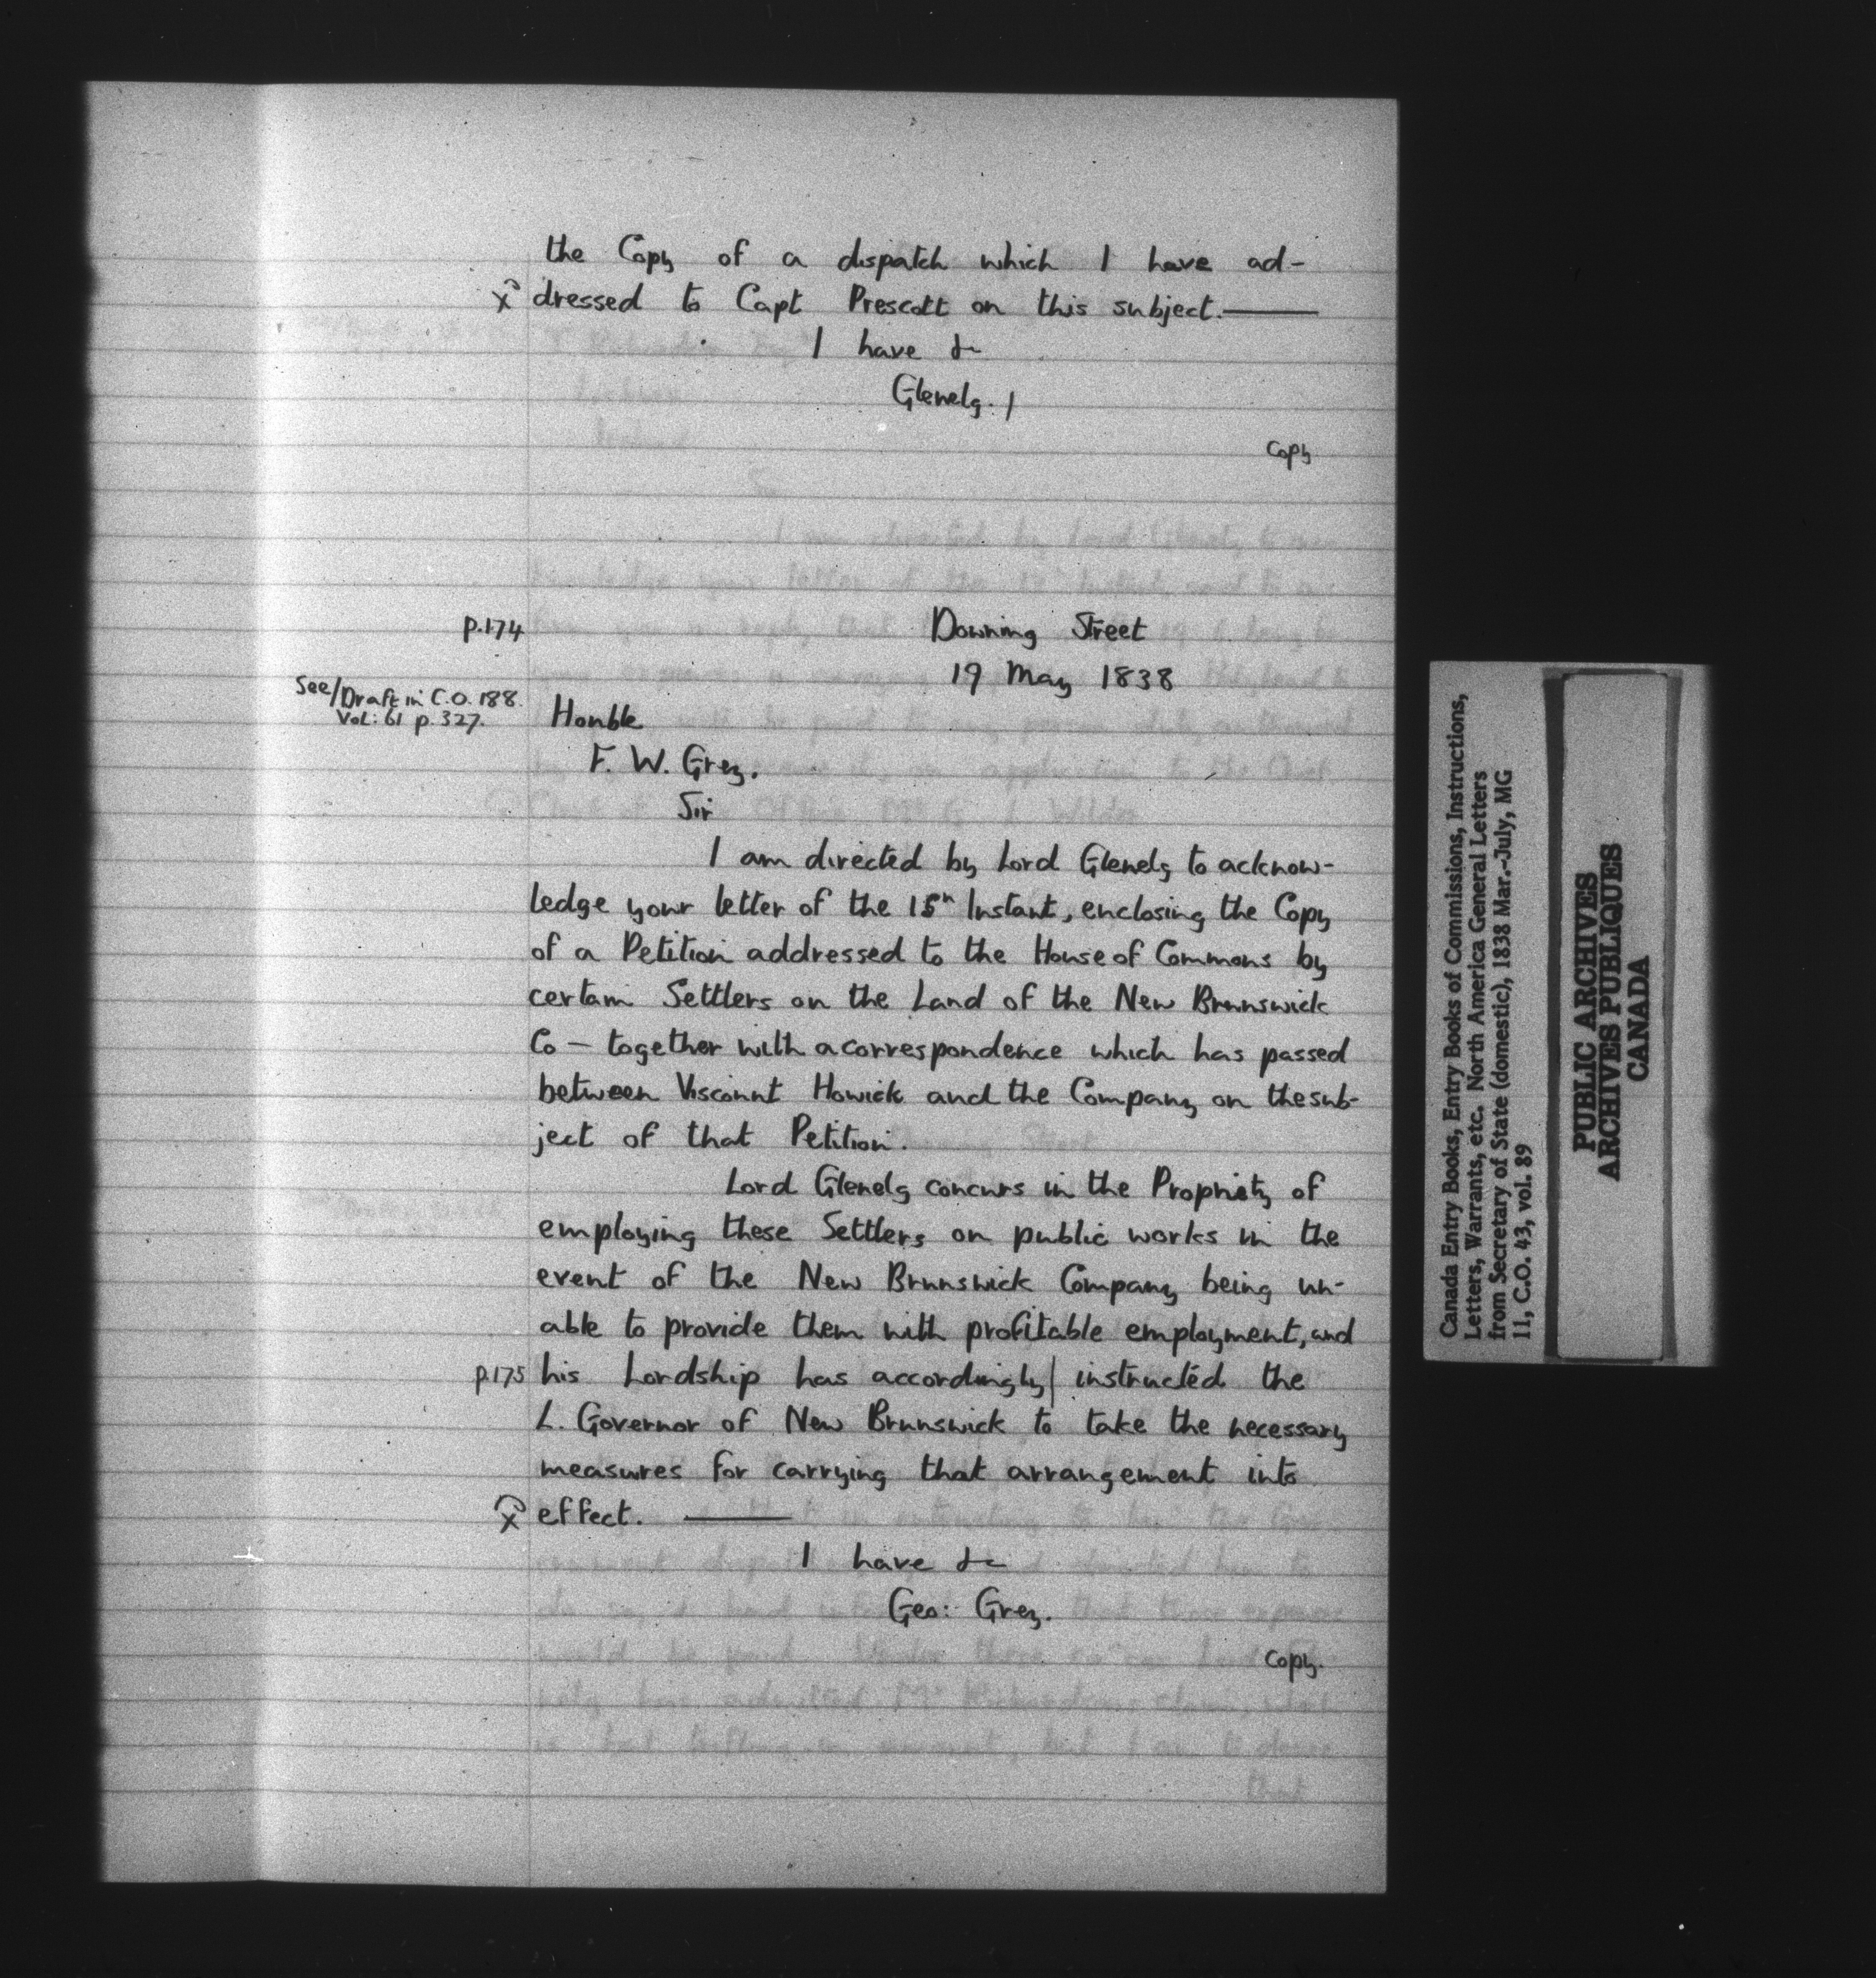 the Copy of a dispatch which I have ad-
x dressed to Capt Prescott on this subject.——
I have &c
Glenelg. /
Copy
p.174
Downing Street
19 May 1838
See/Draft in C.O. 188.
Vol: 61 p. 327.
Honble
F. W. Grey.
Sir
I am directed by Lord Glenelg to acknow-
ledge your letter of the 15th Instant, enclosing the Copy
of a Petition addressed to the House of Commons by
certain Settlers on the Land of the New Brunswick
Co — together with a correspondence which has passed
between Viscount Howick and the Company on the sub-
ject of that Petition.
Lord Glenelg concurs in the Propriety of
employing these Settlers on public works in the
event of the New Brunswick Company being un-
able to provide them with profitable employment, and
p.175 his Lordship has accordingly| instructed the
L. Governor of New Brunswick to take the necessary
measures for carrying that arrangement into
x effect. ——
I have &c
Geo: Grey.
Copy.
Canada Entry Books, Entry Books of Commissions, Instructions,
Letters, Warrants, etc. North America General Letters
from Secretary of State (domestic), 1838 Mar.-July, MG
11, C.O. 43, vol. 89
PUBLIC ARCHIVES
ARCHIVES PUBLIQUES
CANADA